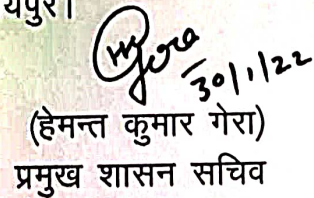 यपुर।
30/1/22
(हेमन्त कुमार गेरा)
प्रमुख शासन सचिव